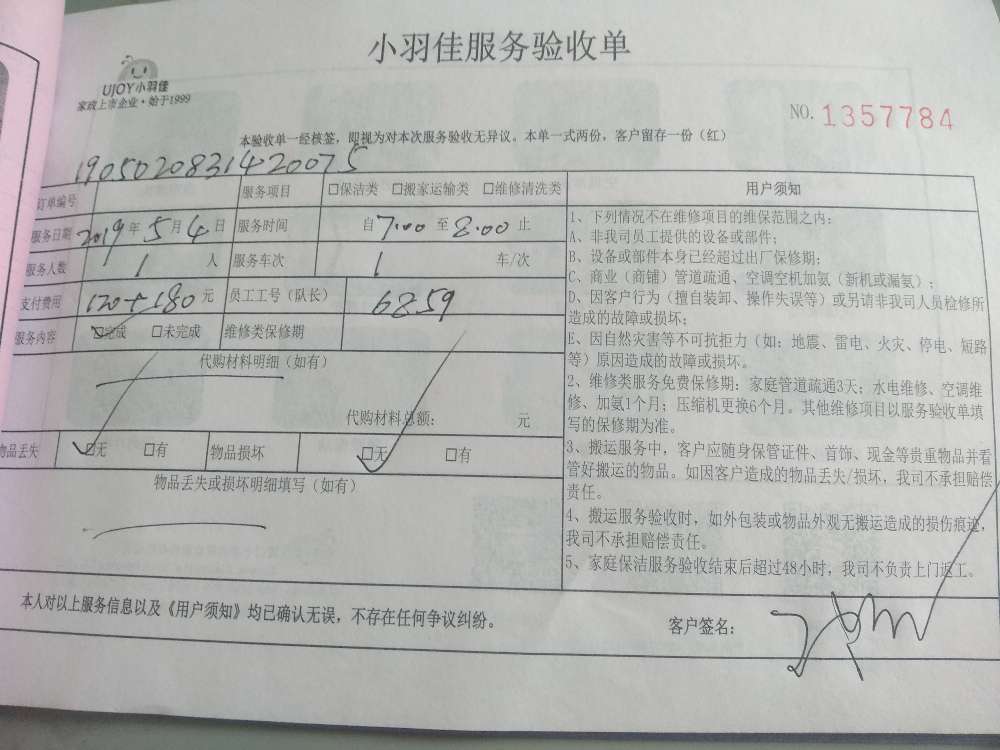 小羽佳服务验收单
UJOY小羽佳
家政上市企业·始于1999
NO. 1357784
本验收单一经核签，即视为对本次服务验收无异议。本单一式两份，客户留存一份（红）
订单编号 1905020831420075 服务项目 □保洁类 □搬家运输类 □维修清洗类
服务日期 2019年5月4日 服务时间 自7:00至8:00止
服务人数 1人 服务车次 1车/次
支付费用 120+180元 员工工号（队长） 6859
服务内容 □完成 □未完成 维修类保修期
代购材料明细（如有）
代购材料总额： 元
物品丢失 □无 □有 物品损坏 □无 □有
物品丢失或损坏明细填写（如有）
用户须知
1、下列情况不在维修项目的维保范围之内：
A、非我司员工提供的设备或部件；
B、设备或部件本身已经超过出厂保修期；
C、商业（商铺）管道疏通、空调空机加氨（新机或漏氨）；
D、因客户行为（擅自装卸、操作失误等）或另请非我司人员检修所
造成的故障或损坏；
E、因自然灾害等不可抗拒力（如：地震、雷电、火灾、停电、短路
等）原因造成的故障或损坏。
2、维修类服务免费保修期：家庭管道疏通3天；水电维修、空调维
修、加氨1个月；压缩机更换6个月。其他维修项目以服务验收单填
写的保修期为准。
3、搬运服务中，客户应随身保管证件、首饰、现金等贵重物品并看
管好搬运的物品。如因客户造成的物品丢失/损坏，我司不承担赔偿
责任。
4、搬运服务验收时，如外包装或物品外观无搬运造成的损伤痕迹，
我司不承担赔偿责任。
5、家庭保洁服务验收结束后超过48小时，我司不负责上门返工。
本人对以上服务信息以及《用户须知》均已确认无误，不存在任何争议纠纷。
客户签名：